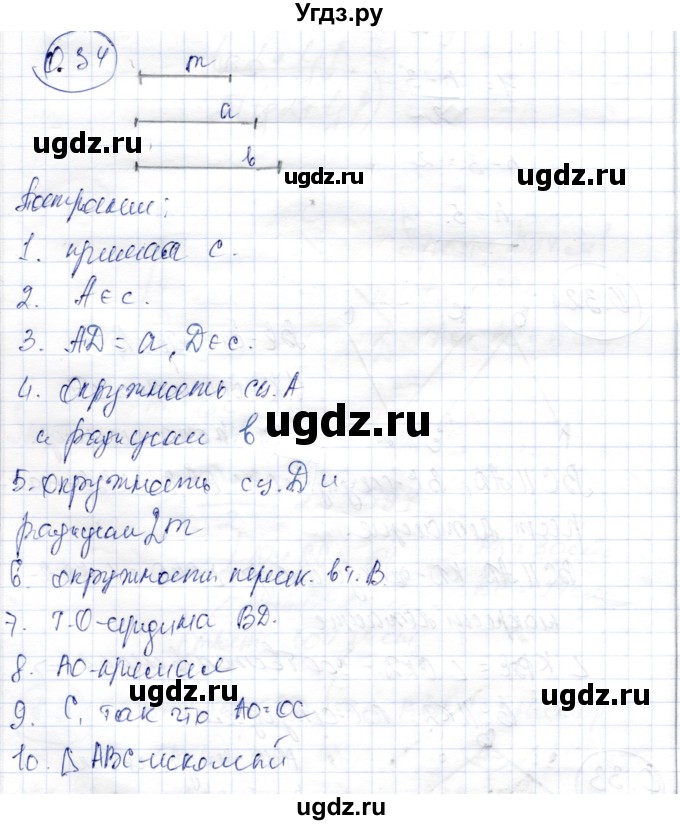 Угдз.ру
0.34
m
a
ugdz.ru ugdz.ru
в
ugdz.ru
Построении:
1. прямая с.
2. A ∈ c.
3. AD = a, D ∈ c.
4. окружность с ц. A
и радиусом в
ugdz.ru
5. окружность с ц. D и
радиусом 2m
ugdz.ru ugdz.ru
6. окружности пересек. в т. B.
7. Т. O-середина BD.
8. AO-прямая
ugdz.ru ugdz.ru
9. C, так что AO=OC
10. Δ ABC-искомый
ugdz.ru
ugdz.ru